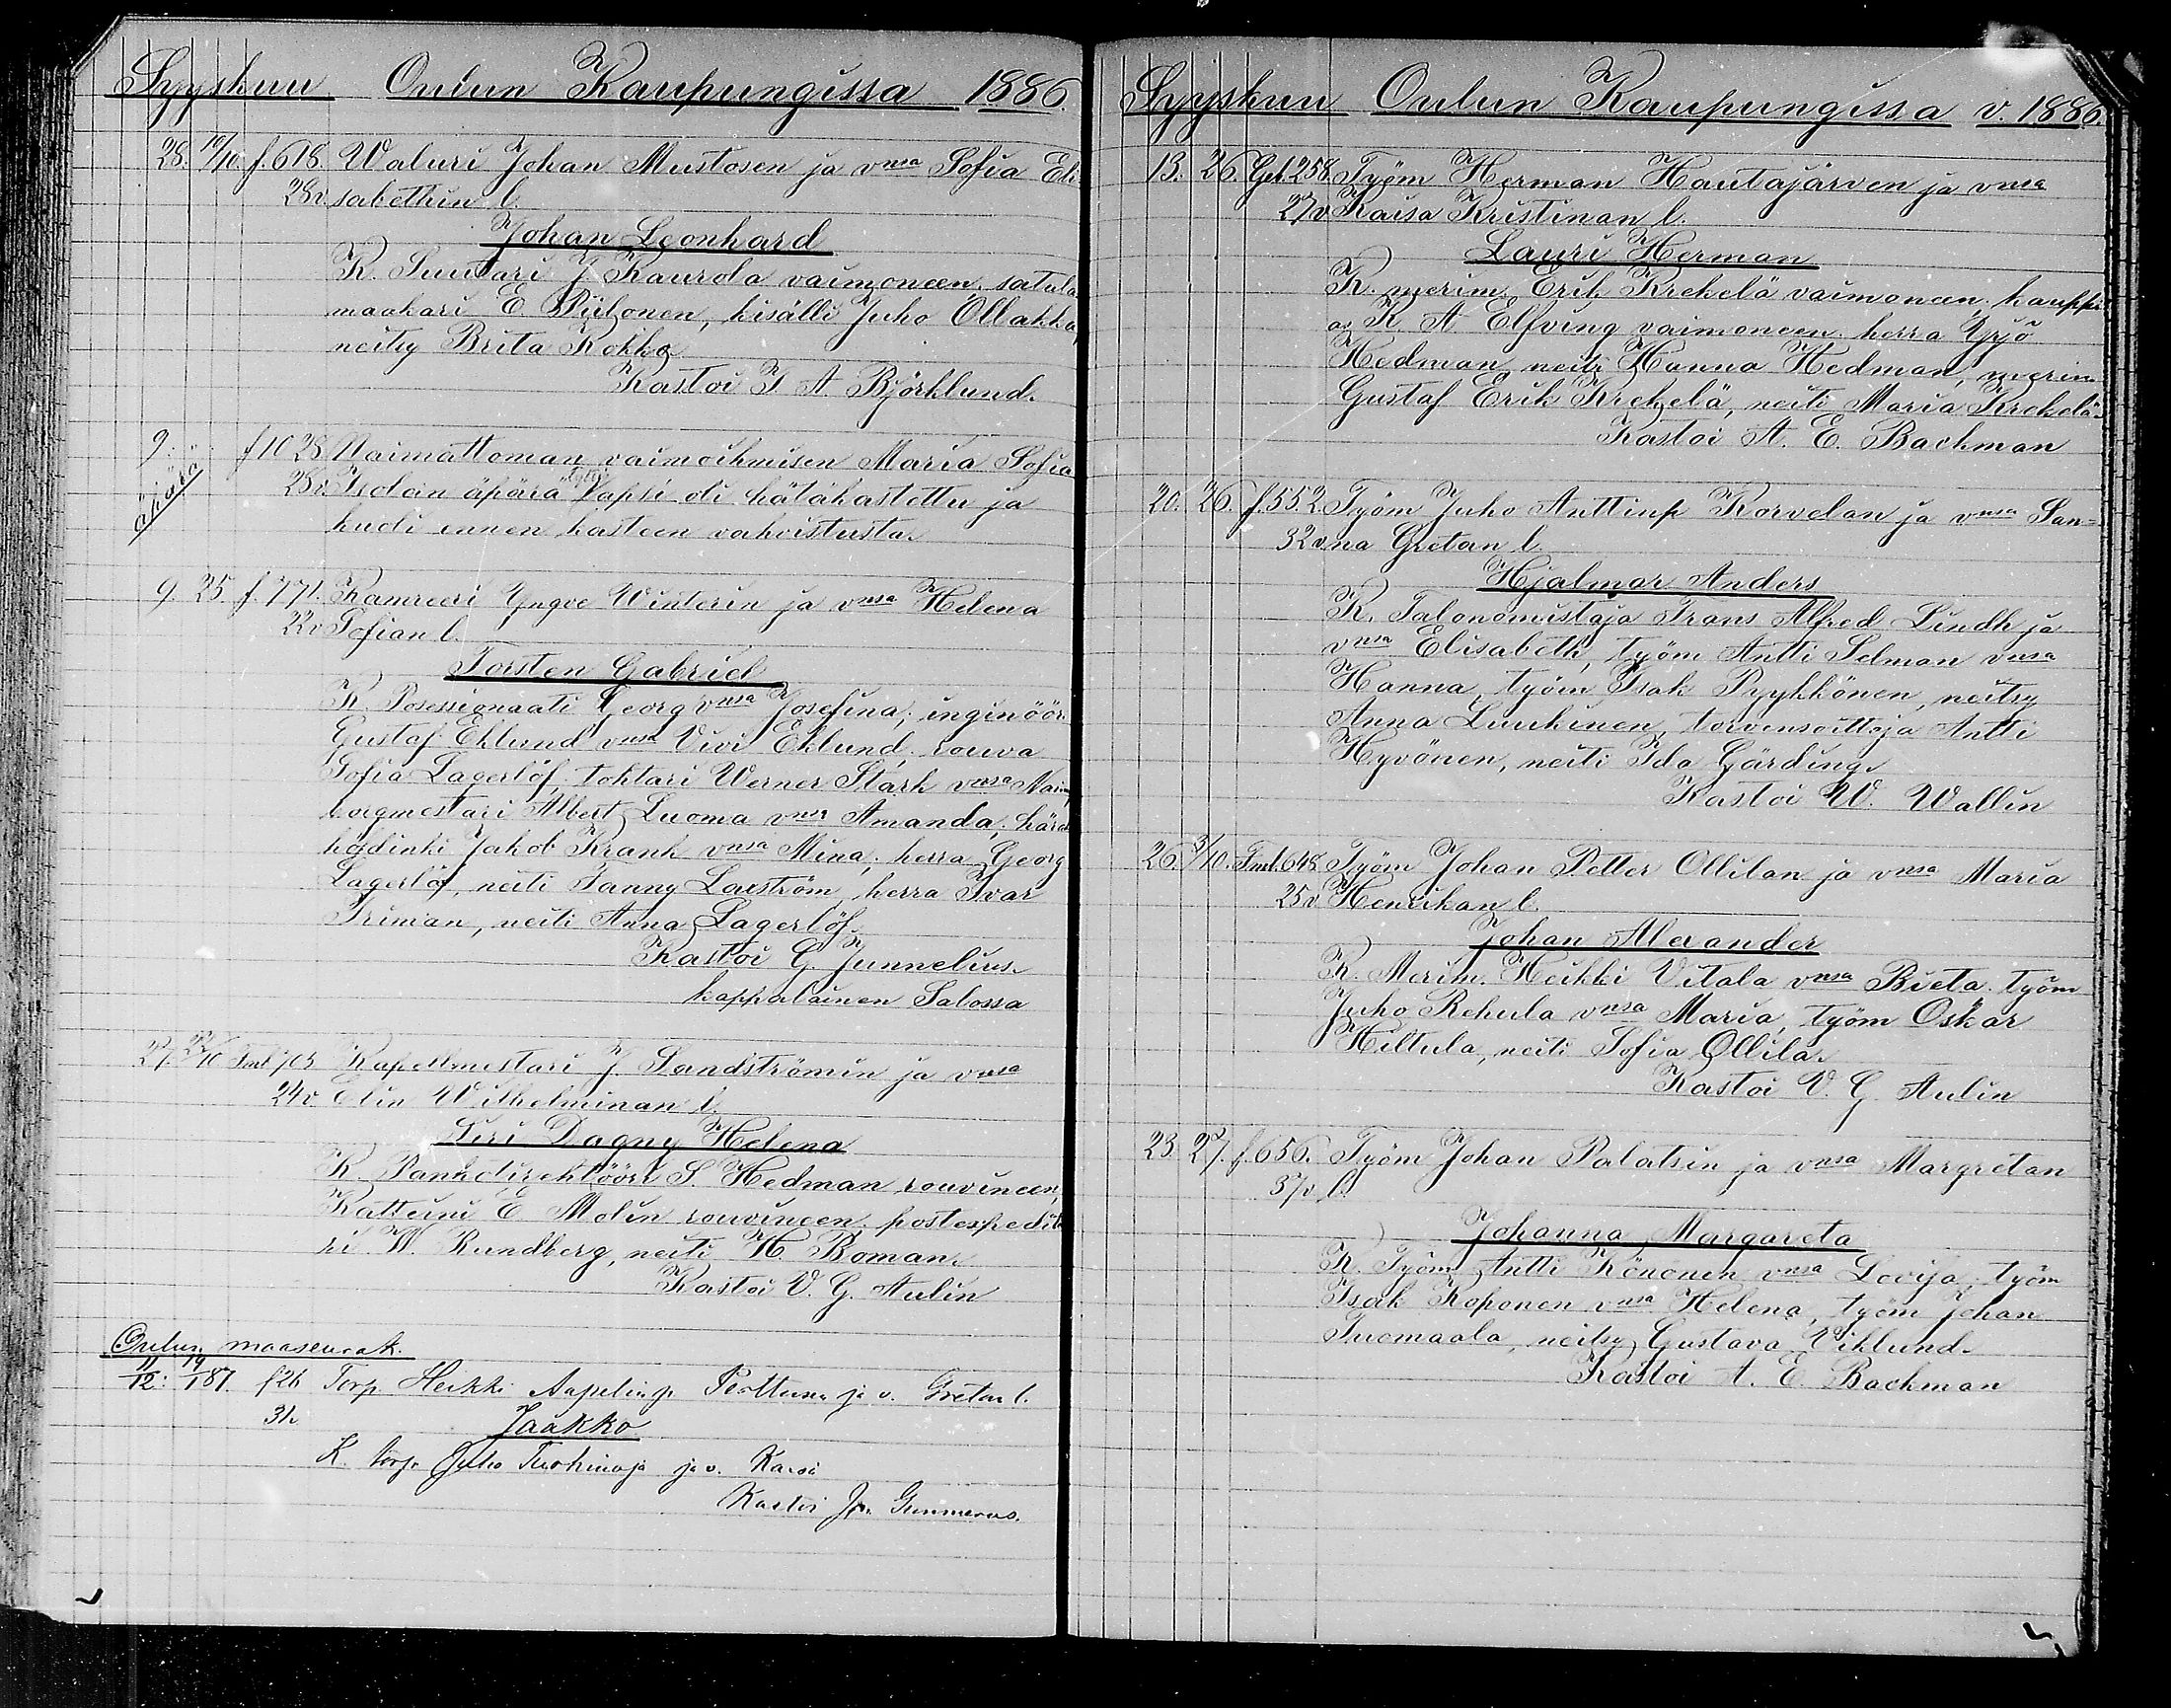 Syyskuu Oulun Kaupungissa 1886.
28. 10/10. f. 618. Waluri Johan Mustosen ja vnsa Sofia Eli
28v. sabethin l.
Johan Leonhard
K. Suutari J. Kaurola vaimoneen, satula
maakari E. Piilonen, kisälli Juho Ollakka,
neitsy Brita Kokko
Kastoi J. A. Björklund.
9. f 1028 Naimattoman vaimoihmisen Maria Sofia
äpärä 28v. äpärä tyttö lapsi oli hätäkastettu ja
kuoli ennen kasteen vahvistusta.
9. 25. f. 771. Kamreeri Yngve Winterin ja vnsa Helena
22v Sofian l.
Torsten Gabriel
K. Posessionaati Georg vnsa Josefina; inginööri
Gustaf Eklund vnsa Vivi Eklund, rouva
Sofia Lagerlöf, tohtari Werner Stark vnsa
borgmestari Albert Luoma vnsa Amanda; härads
hödinki Jakob Krank vnsa Mina; herra Georg
Lagerlöf, neiti Fanny Laxström, herra Ivar
Friman, neiti Anna Lagerlöf.
Kastoi G. Junnelius.
kappalainen Salossa
27. 22/10 Inl 703 Kapellmestari J. Sandströmin ja vnsa
24v. Elin Wilhelminan l.
Siri Dagny Helena
K. Pankdirektööri S. Hedman rouvineen,
Ratteini E. Molin rouvineen, postexpeditö
ri W. Rundberg, neiti H. Boman.
Kastoi V. G. Aulin
Oulun maaseurak.
11/12: 19/1 87. f 26 Torp. Heikki Aapelinp. Perttuna ja v. Gretan l.
31.
Jaakko
K. torp. Juho ja v. Kaisi
Kastoi Jn. Gummerus.
Syyskuu Oulun Kaupungissa v. 1886.
13. 26. Gel. 258. Työm Herman Hautajärven ja vnsa
27v Kaisa Kristinan l.
Lauri Herman
K. merim. Erik Krekelä vaimoneen, kauppi
as K. A Elfving vaimoneen, herra Yrjö
Hedman, neiti Hanna Hedman, merim
Gustaf Erik Krekelä, neiti Maria Krekelä.
Kastoi A. E. Bachman
20. 26. f. 552. Työm Juho Anttinp Korvelan ja vnsa San=
32v. na Gretan l.
Hjalmar Anders
K. Talonomistaja Frans Alfred Lindh ja
vnsa Elisabeth, työm Antti Selman vnsa
Hanna, työm Isak Pyykkönen, neitsy
Anna Luukinen, torvensoittaja Antti
Hyvönen, neiti Ida Gärding.
Kastoi W. Wallin
26. 3/10. Inl. 648. Työm Johan Petter Ollilan ja vnsa Maria
25v Henrikan l.
Johan Alexander
K. Merim. Heikki Vitala vnsa Brita, työm
Juho Rehula vnsa Maria, työm Oskar
Hiltula, neiti Sofia Ollila.
Kastoi V. G. Aulin
23. 27. f. 656. Työm Johan Palatsin ja vnsa Margretan
37v l.
Johanna Margareta
K. Työm Antti Könönen vnsa Lovisa; työm
Isak Koponen vnsa Helena, työm Johan
Tuomaala, neitsy Gustava Viklund.
Kastoi A. E. Bachman